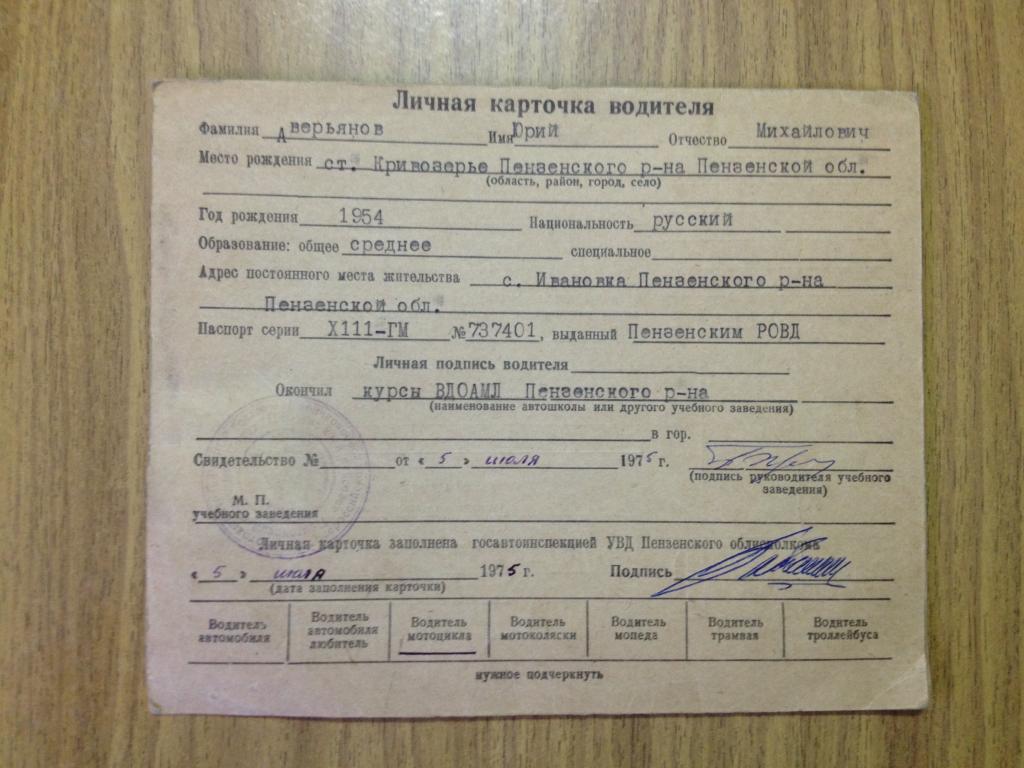 Личная карточка водителя
Фамилия Аверьянов Имя Юрий Отчество Михайлович
Место рождения ст. Кривозерье Пензенского р-на Пензенской обл.
(область, район, город, село)
Год рождения 1954 Национальность русский
Образование: общее среднее специальное
Адрес постоянного места жительства с. Ивановка Пензенского р-на
Пензенской обл.
Паспорт серии X111-ГМ №737401, выданный Пензенским РОВД
Личная подпись водителя
Окончил курсы ВДОАМЛ Пензенского р-на
(наименование автошколы или другого учебного заведения)
в гор.
Свидетельство № от «5» июля 1975 г.
(подпись руководителя учебного
заведения)
М. П.
учебного заведения
Личная карточка заполнена госавтоинспекцией УВД Пензенского облисполкома
«5» июля 1975 г. Подпись
(дата заполнения карточки)
Водитель автомобиля
Водитель автомобиля любитель
Водитель мотоцикла
Водитель мотоколяски
Водитель мопеда
Водитель трамвая
Водитель троллейбуса
нужное подчеркнуть